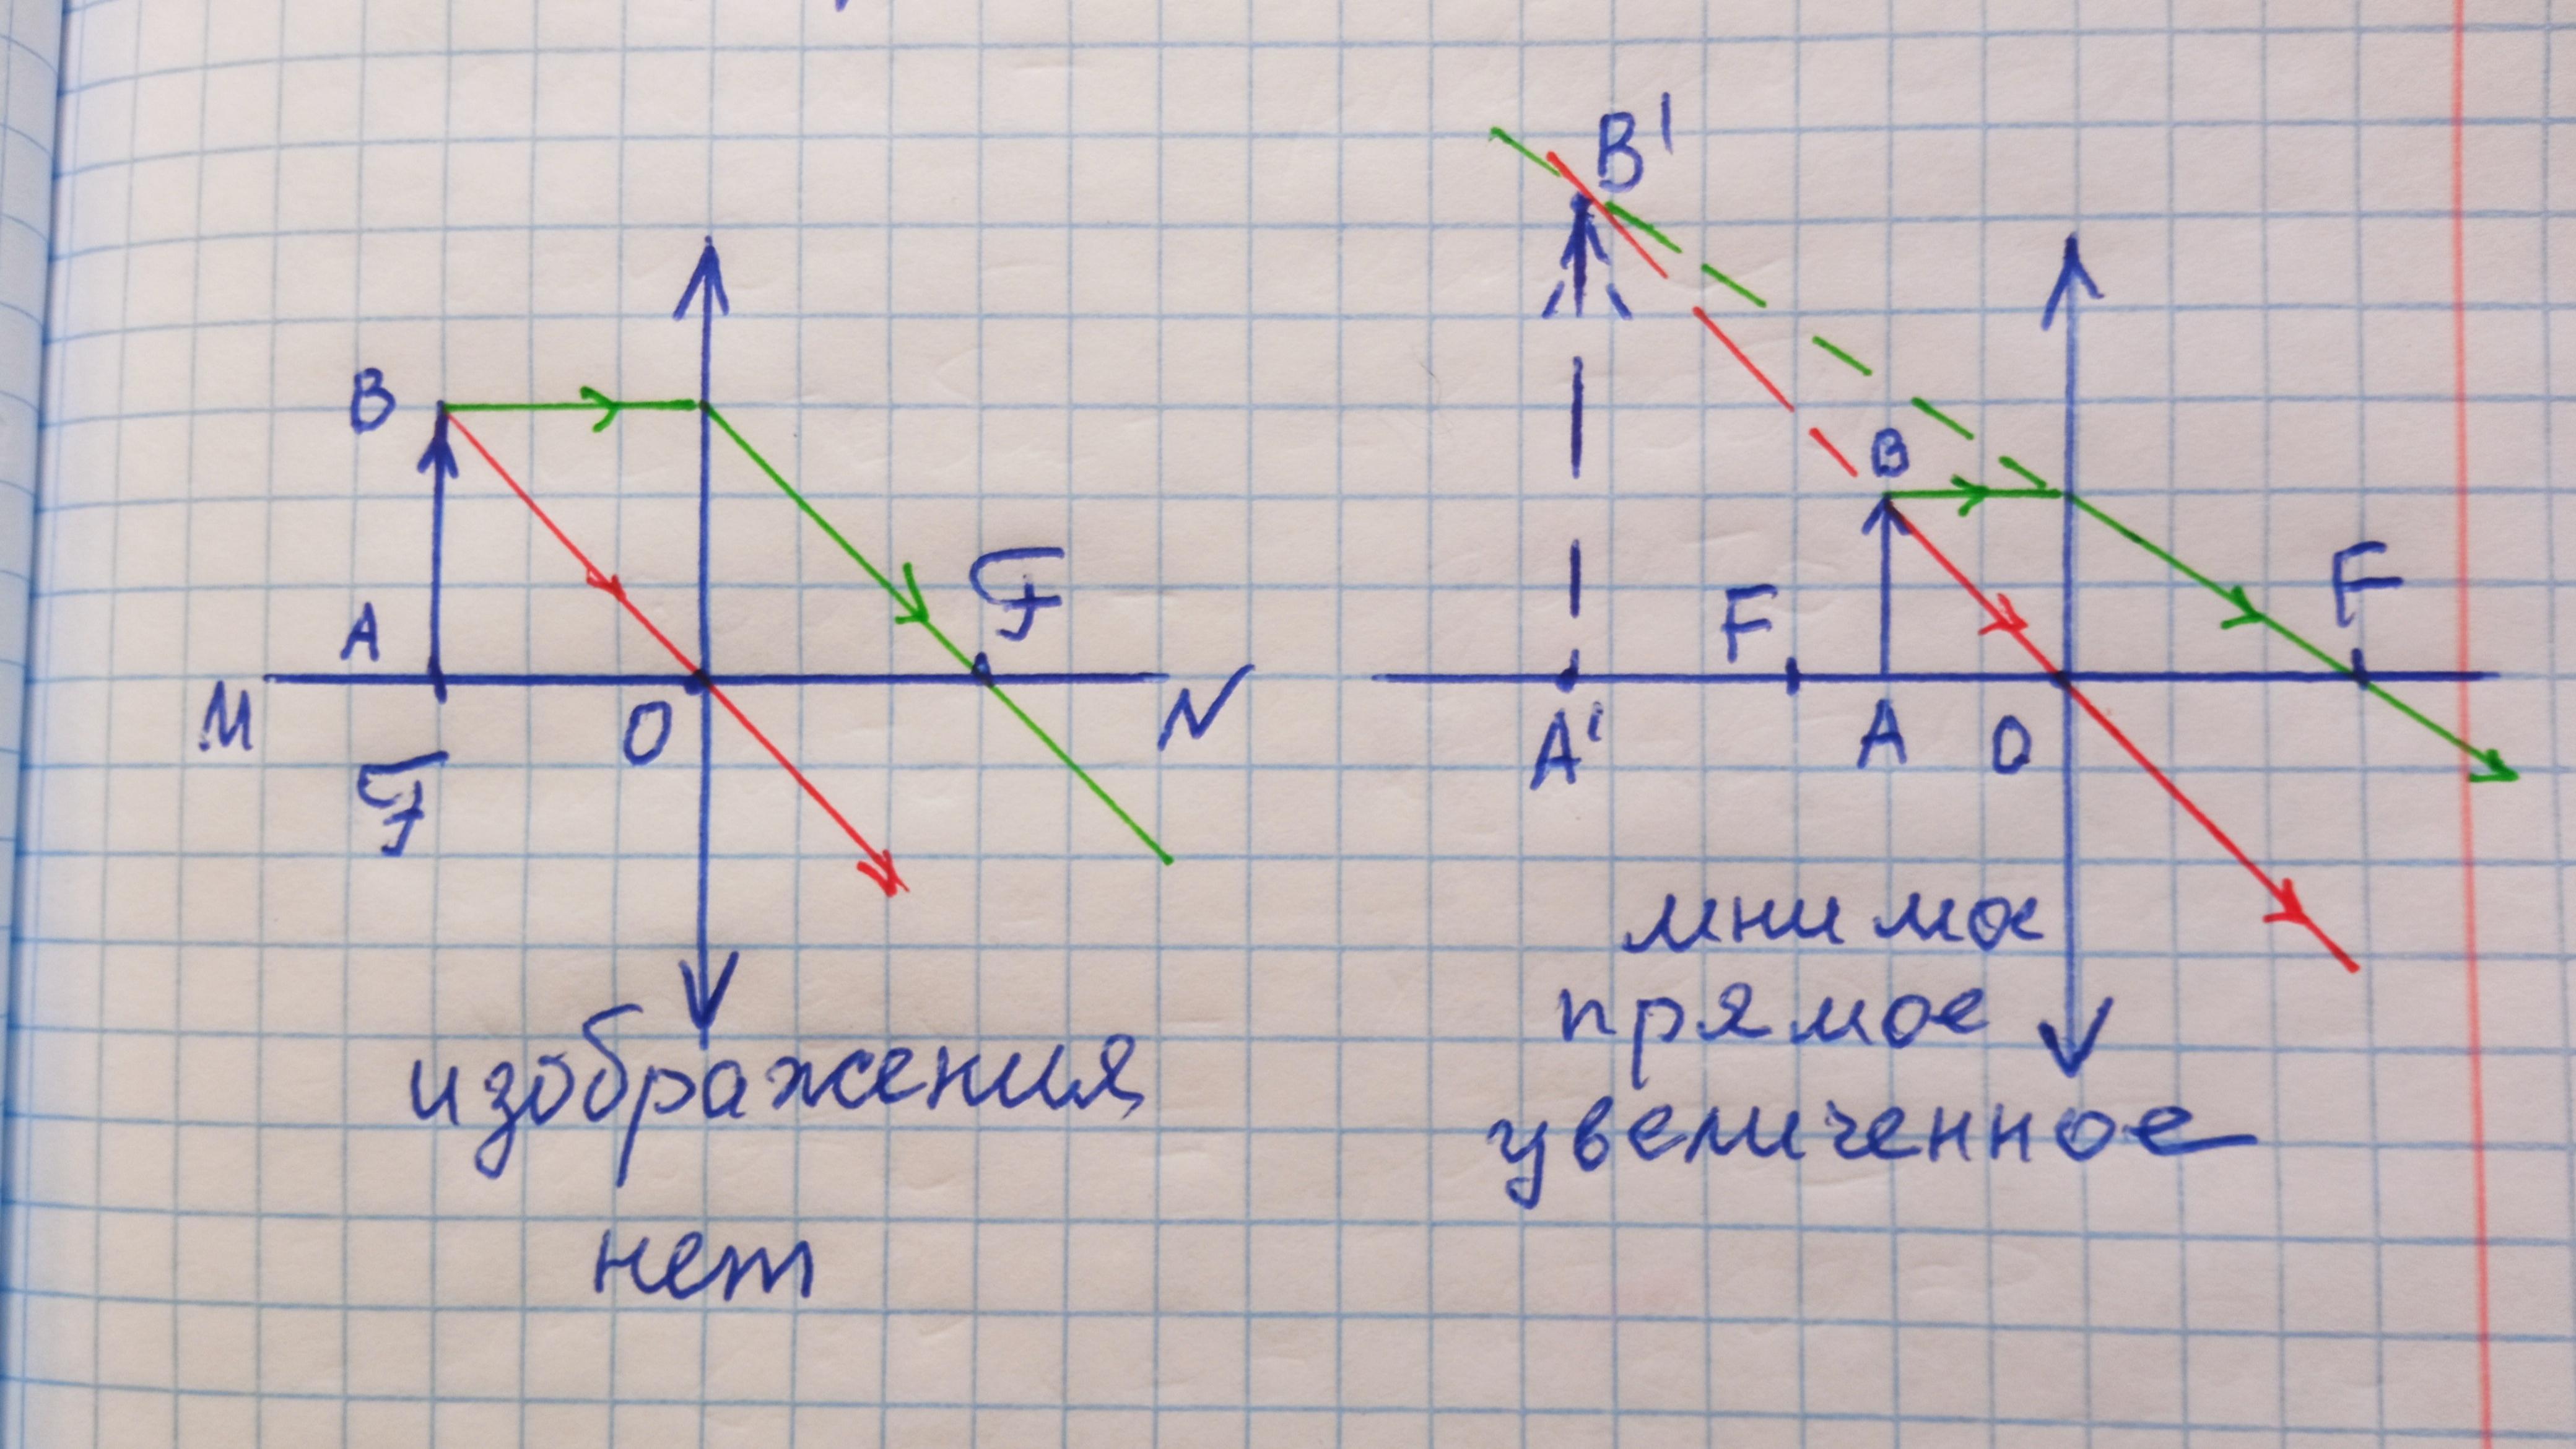 B
A
F
M
N
O
F
изображения
нет
B'
B
F
F
A'
A
O
мнимое
прямое
увеличенное